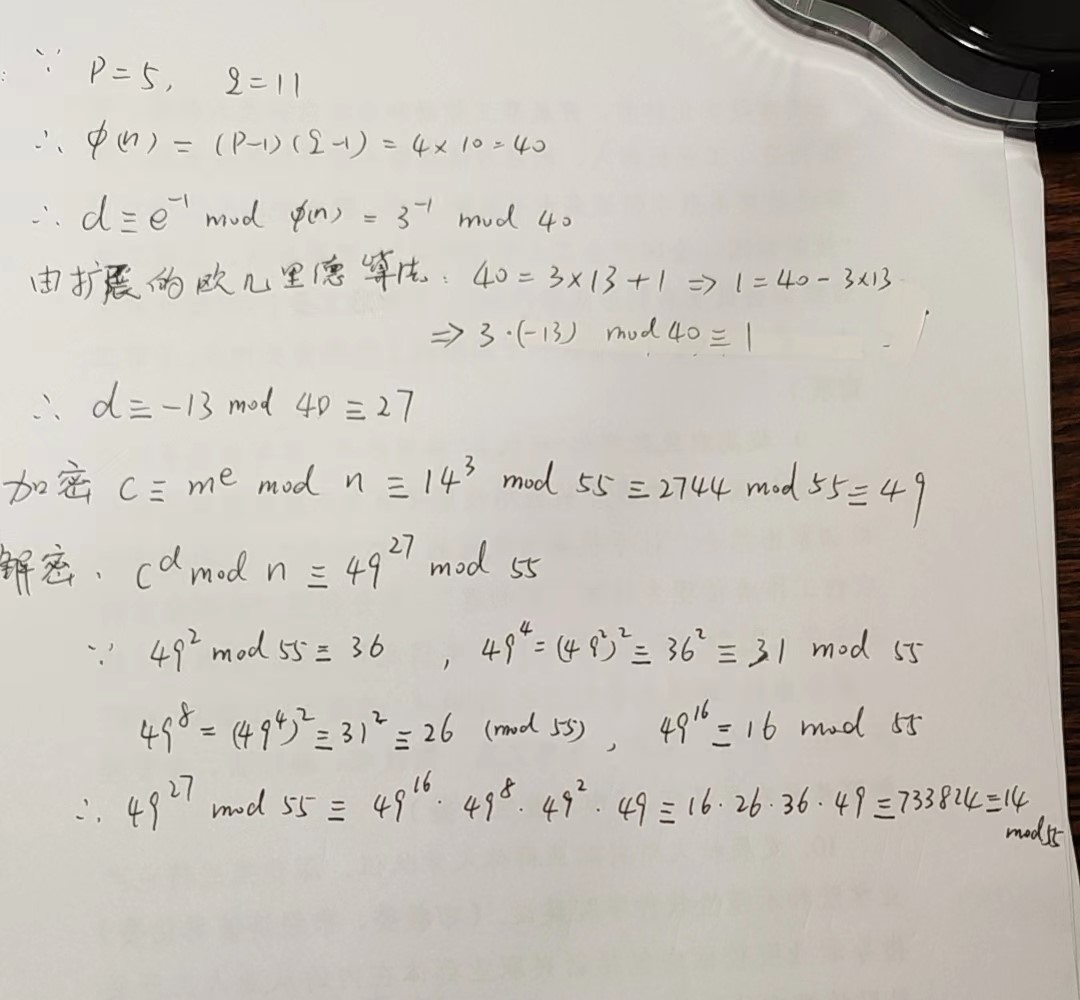 ∵ P=5, q=11
∴ φ(n) = (P-1)(q-1) = 4×10=40
∴ d≡e⁻¹ mod φ(n) = 3⁻¹ mod 40
由扩展的欧几里德算法: 40=3×13+1 ⇒ 1=40-3×13
⇒ 3·(-13) mod 40≡1
∴ d≡-13 mod 40≡27
加密 c≡mᵉ mod n≡14³ mod 55≡2744 mod 55≡49
解密. cᵈ mod n≡49²⁷ mod 55
∵ 49² mod 55≡36, 49⁴=(49²)²≡36²≡31 mod 55
49⁸=(49⁴)²≡31²≡26 (mod 55), 49¹⁶≡16 mod 55
∴ 49²⁷ mod 55≡49¹⁶·49⁸·49²·49≡16·26·36·49≡733824≡14
mod 55